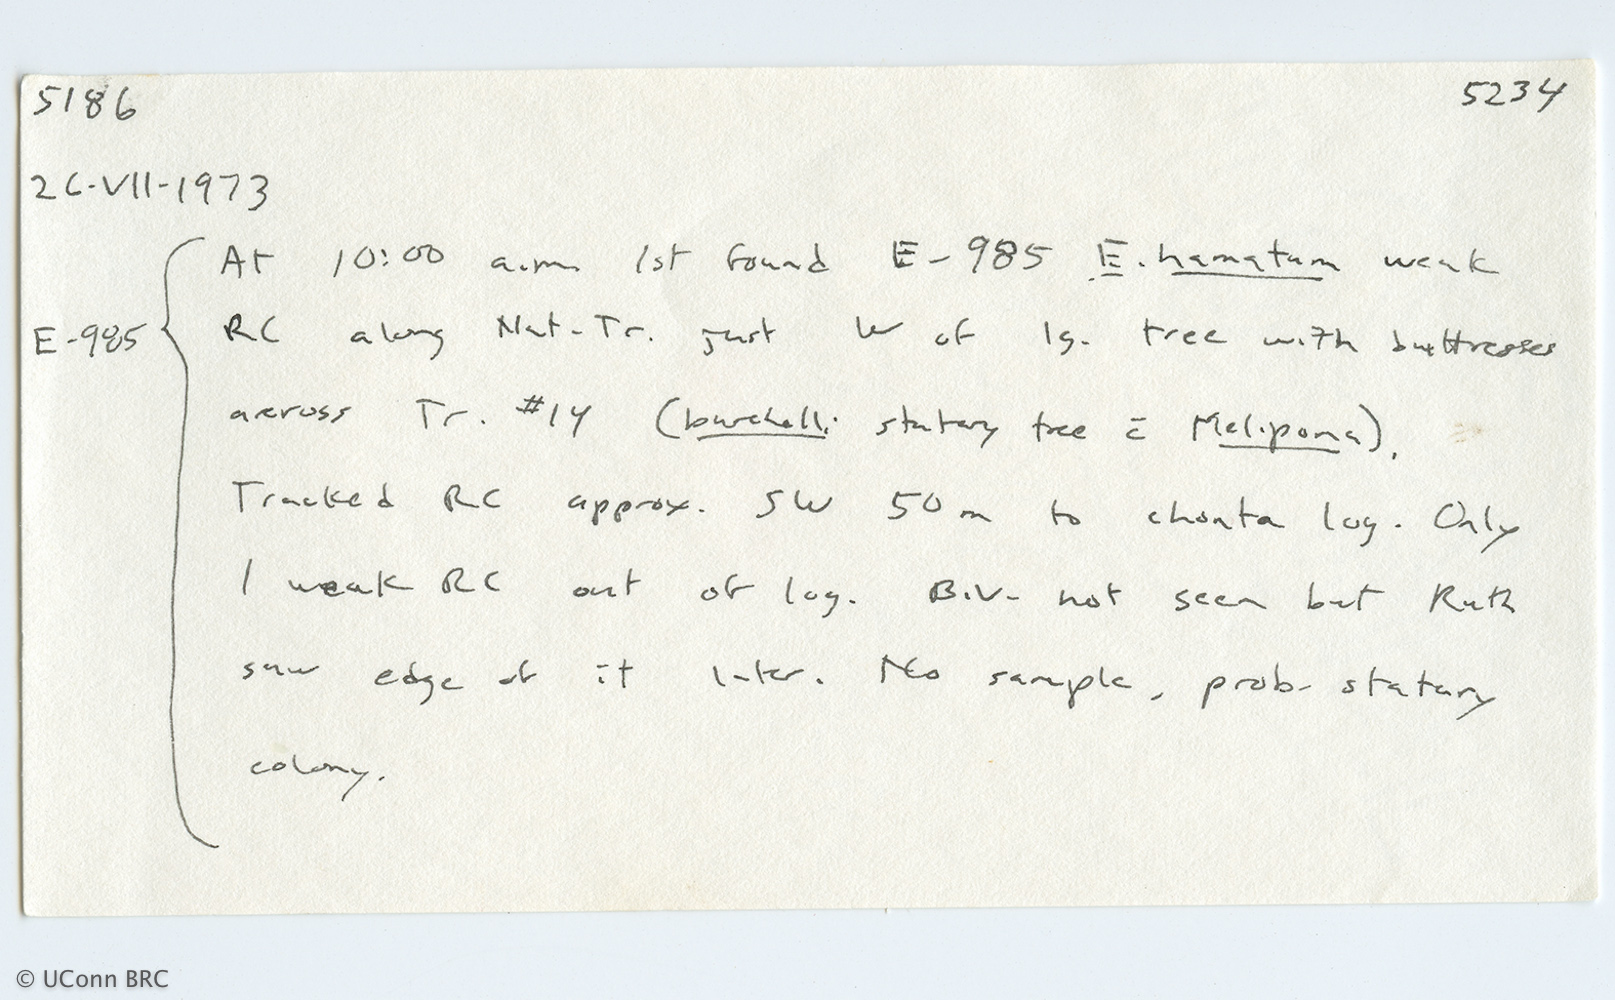 5186 5234
26-VII-1973
At 10:00 a.m. 1st found E-985 E. hamatum weak
E-985 RC along Nat-Tr. just W of lg. tree with buttresses
across Tr. #14 (burchelli statary tree c̄ Melipona).
Tracked RC approx. SW 50m to chonta log. Only
1 weak RC out of log. Biv. not seen but Ruth
saw edge of it later. No sample, prob. statary
colony.
© UConn BRC